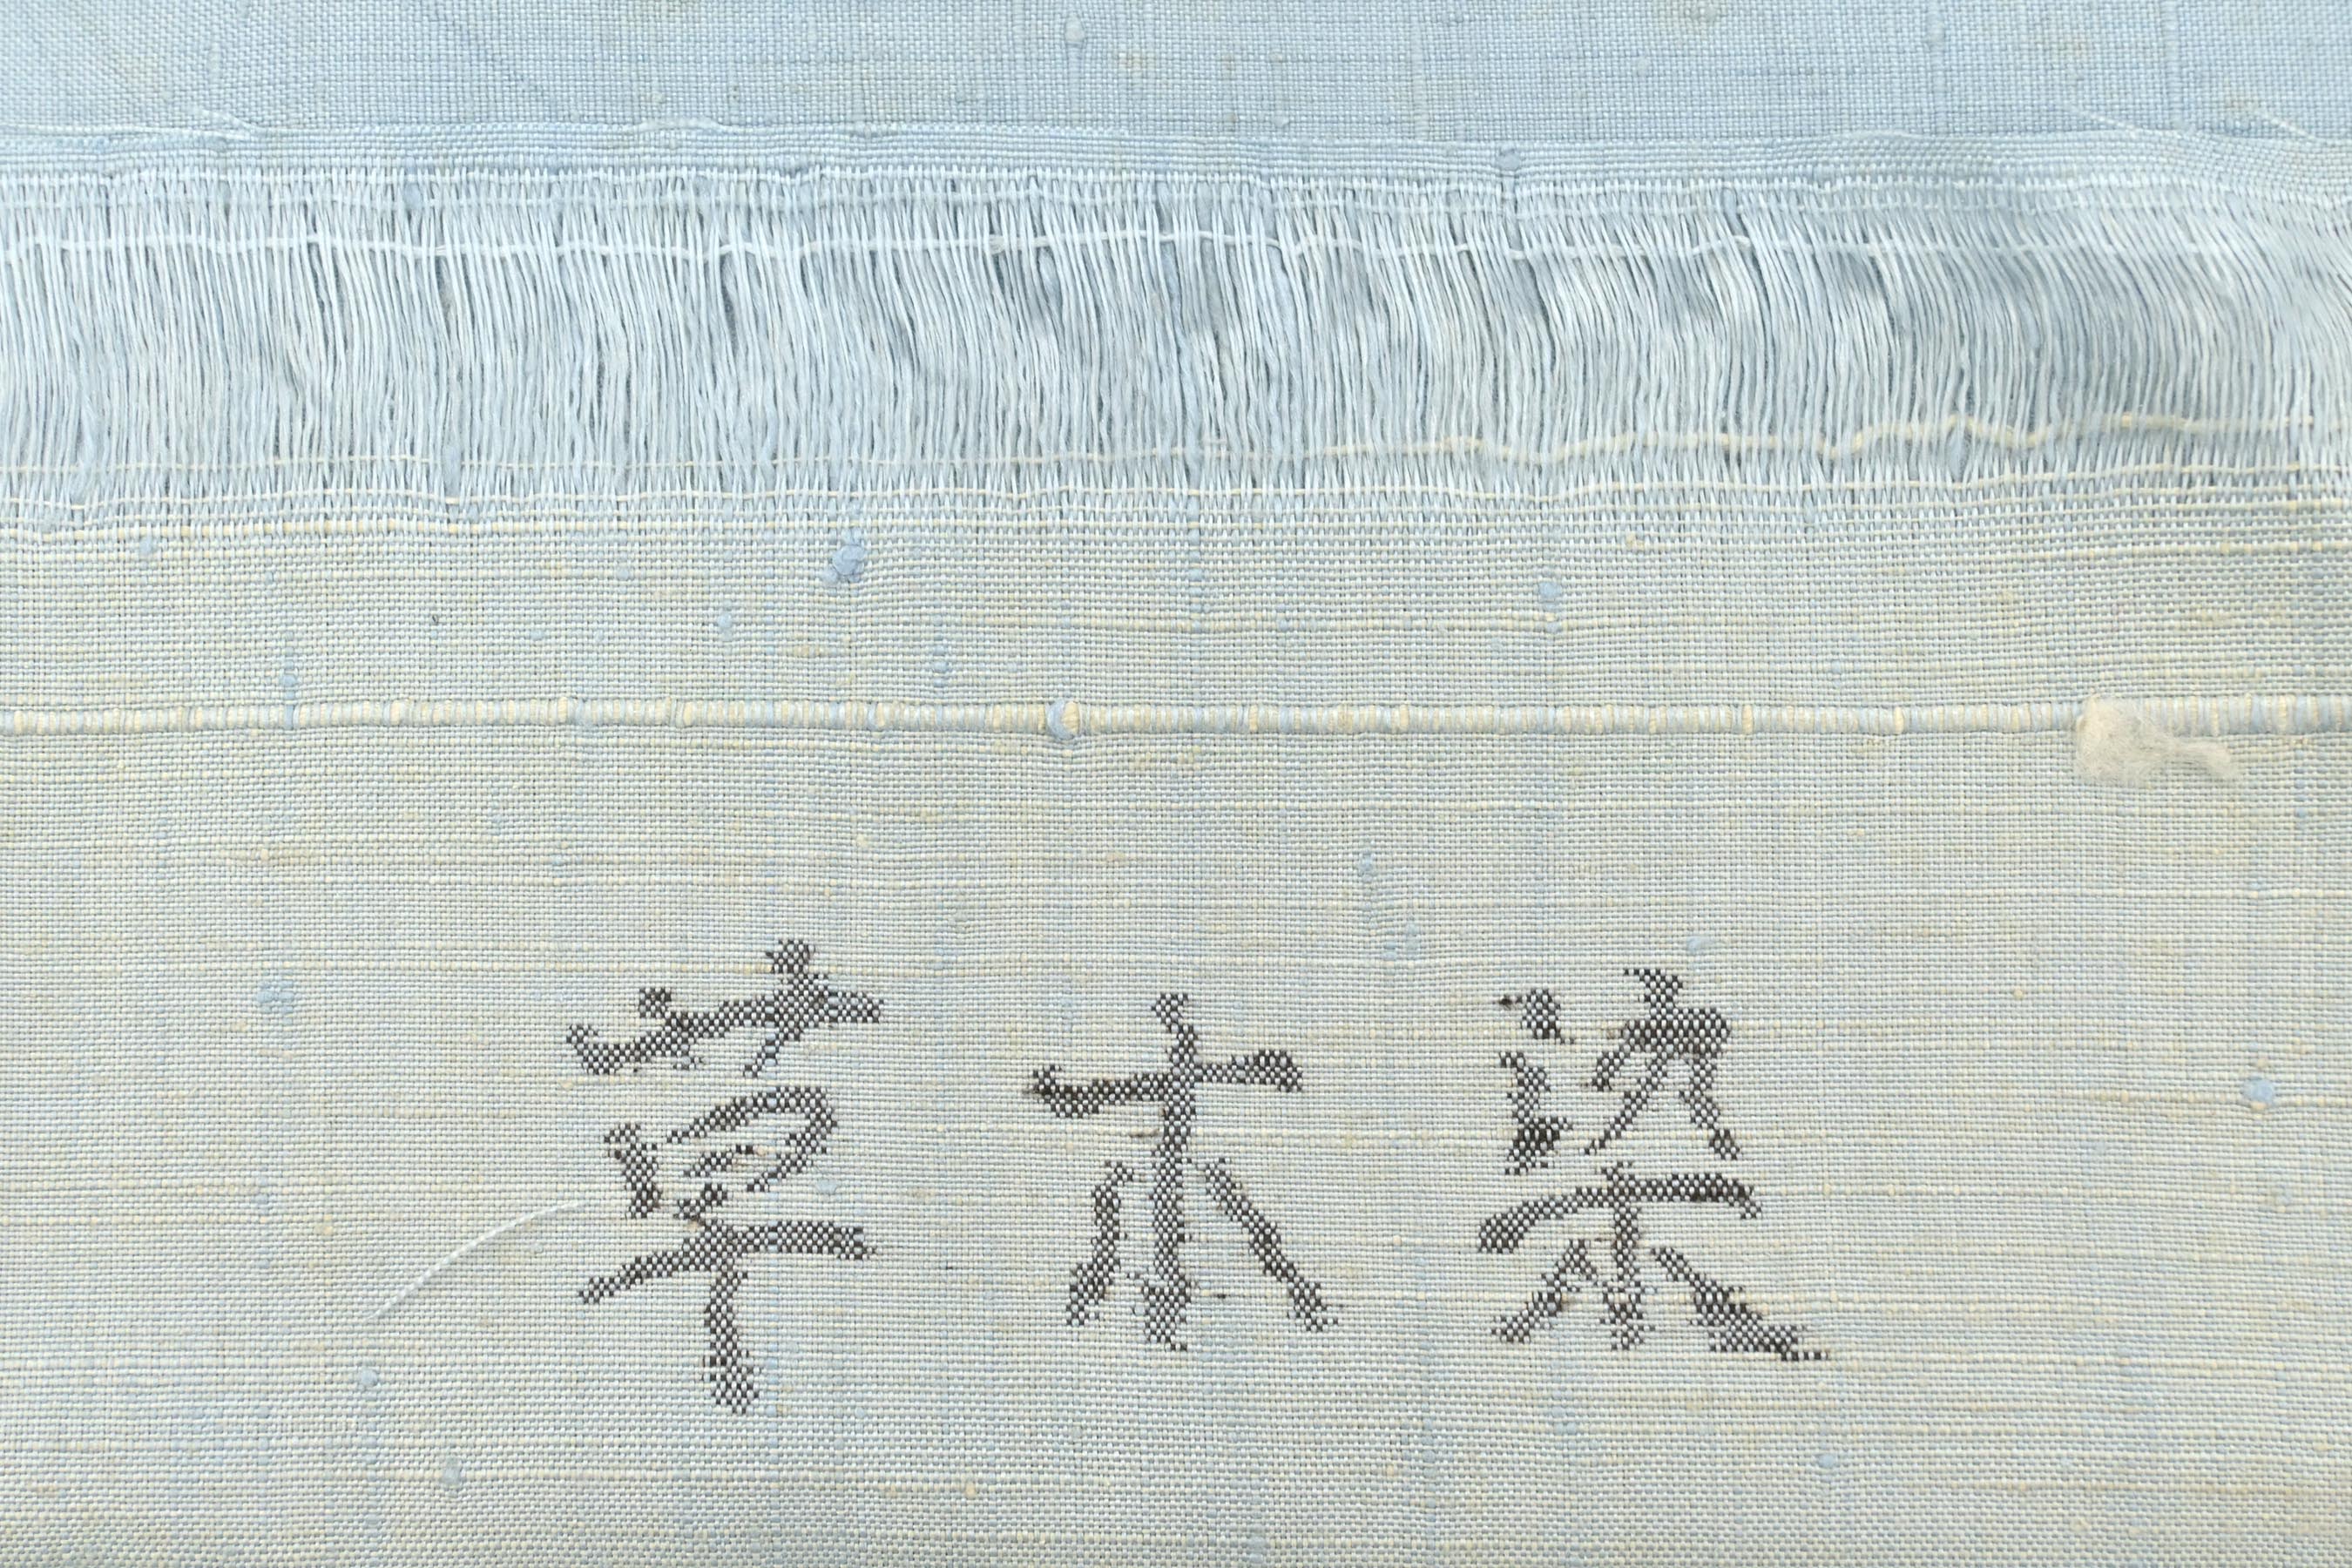 草木染